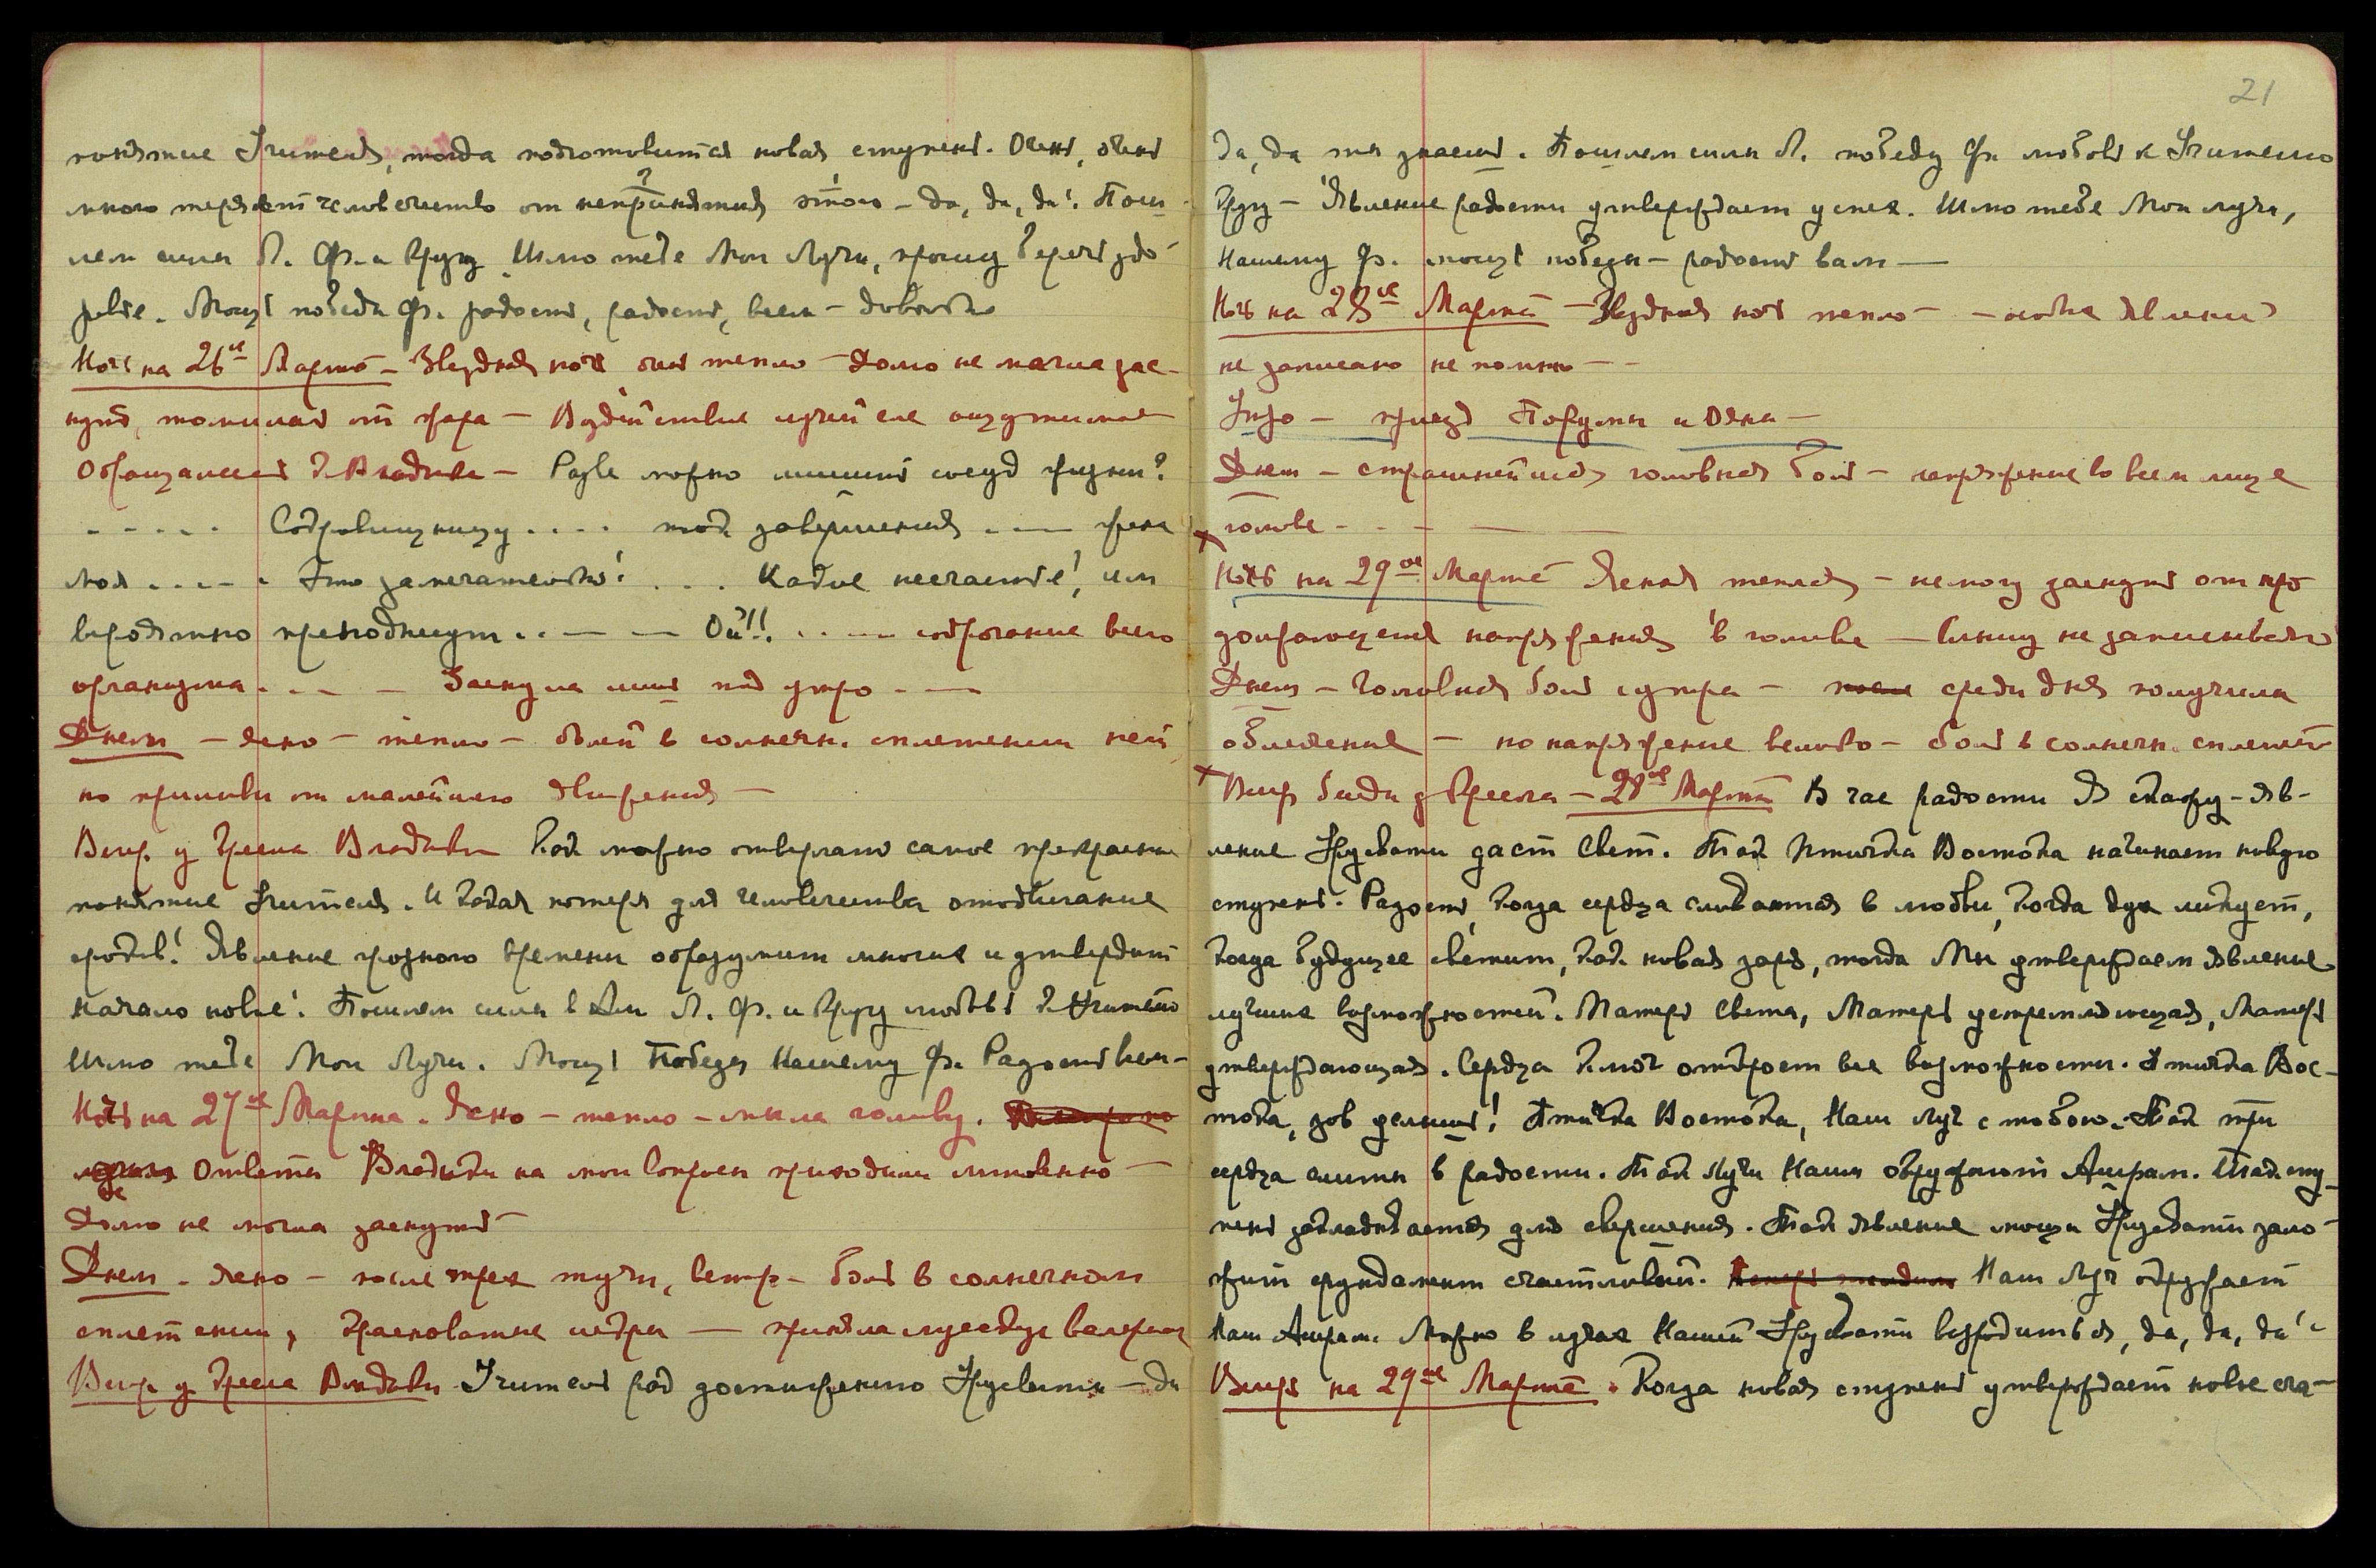 понятие Учителя, тогда подготовится новая ступень. Очень, очень
много теряет человечество от непринятия этого – да, да, да! Пош-
лем силы Л. Ф. и Кругу Шлю тебе Мои Лучи, прошу беречь здо-
ровье. Мощь победы Ф. радость, радость, всем – довольно
Ночь на 26ое Марта – Звездная ночь очень тепло – Долго не могла зас-
нуть, томилась от жара – Воздействие лучей еле ощутимое
Обращалась к Владыке – Разве можно лишить сосуд жизни?
- - - - - Сокровищницу . . . . мой завершения . . — жена
моя . . . – . Это замечательно! . . . Какое несчастье! им
вероятно преподнесут . . – — — Ой!!! . . – — содрогание всего
организма . . — – Заснула лишь под утро . . —
Днем – ясно – тепло – болей в солнечн. сплетении нет
но приливы от малейшего движения —
Вечер. у Кресла Владыки Как можно отвергать самое прекрасное
понятие Учителя. И какая потеря для человечества отодвигание
сроков! Явление грозного времени образумит многих и утвердит
начало новое! Пошлем силы Л. Ф. и Кругу любовь к Учителю
Шлю тебе Мои Лучи. Мощь Победы Нашему Ф. Радость вам –
Ночь на 27ое Марта. Ясно – тепло – мыла голову.
Ответы Владыки на мои вопросы приходили мгновенно —
Долго не могла заснуть —
Днем – ясно – после трех тучи, ветер – боль в солнечном
сплетении, красноватые искры — приняла мускус, валериан
Вечер у Кресла Владыки Учитель рад достижению Урусвати — да
21
да, да ты знаешь. Пошлем силы Л. победу Ф. любовь к Учителю
Кругу – Явление радости утверждает успех. Шлю тебе Мои лучи,
Нашему Ф. мощь победы – радость вам —
Ночь на 28ое Марта – Звездная ночь тепло – – особых явлений
не записано не помню – –
Утро – приезд Порумы и Ояны –
Днем – страшнейшая головная боль – напряжение во всем лице
голове - - –
Ночь на 29ое Марта Ясная теплая – не могу заснуть от про
должающегося напряжения в голове — Слышу не записываю
Днем – Головная боль с утра – среди дня получила
облегчение – но напряжение велико – боль в солнечн. сплетен
Вечер беседы у Кресла – 28ое Марта В час радости Я скажу – яв-
ление Урусвати даст Свет. Так Птичка Востока начинает новую
ступень. Радость, когда сердца сливаются в любви, когда дух ликует,
когда будущее светит, как новая заря, тогда Мы утверждаем явление
лучших возможностей. Матерь Света, Матерь устремляющая, Матерь
утверждающая. Сердца ключ откроет все возможности. Птичка Вос-
тока, зов услышь! Птичка Востока, Наш луч с тобою. Так три
сердца слиты в радости. Так Лучи Наши окружают Ашрам. Так сту-
пень закладывается для свершения. Так явление мощи Урусвати зало-
жит фундамент счастливый. Наш Луч окружает
Наш Ашрам. Можно в лучах Нашей Урусвати возродиться, да, да, да!
Вечер на 29ое Марта. Когда новая ступень утверждает новое сча-